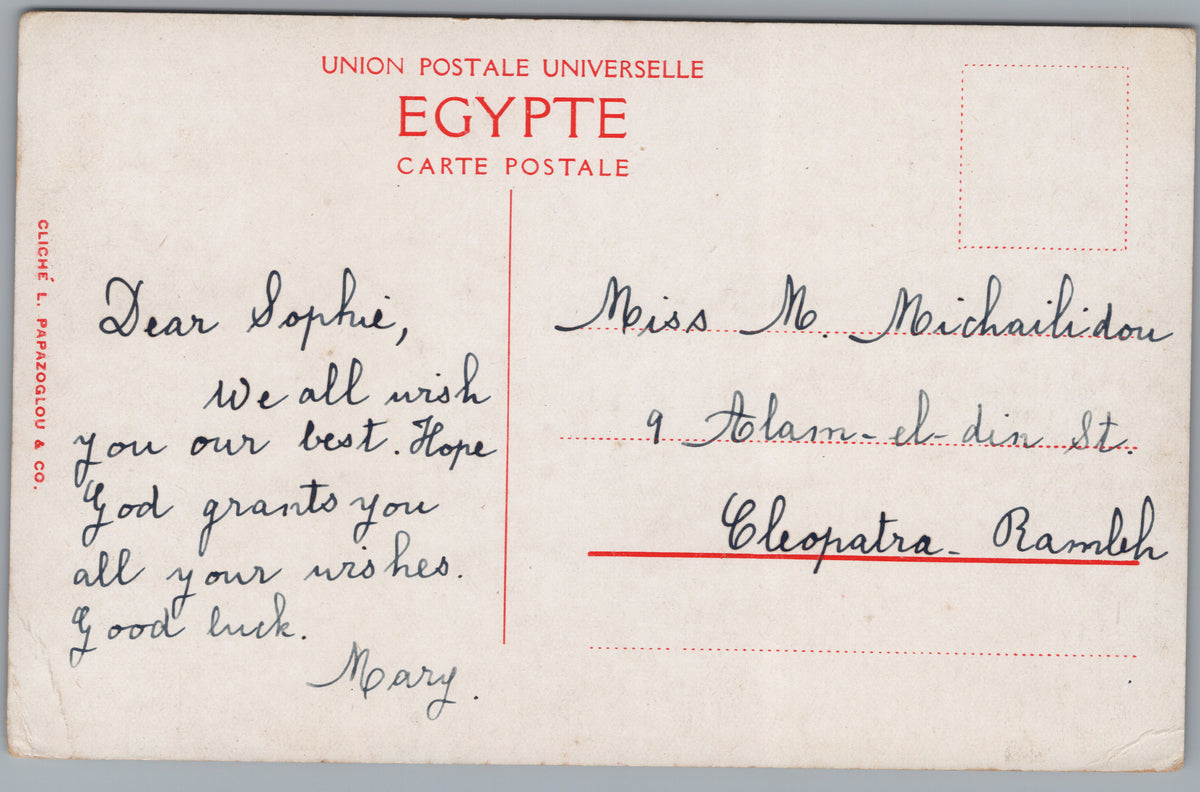 UNION POSTALE UNIVERSELLE
EGYPTE
CARTE POSTALE
CLICHÉ L. PAPAZOGLOU & CO.
Dear Sophie,
We all wish
you our best. Hope
God grants you
all your wishes.
Good luck.
Mary.
Miss M. Michailidou
9 Alam-el-din St.
Cleopatra - Ramleh